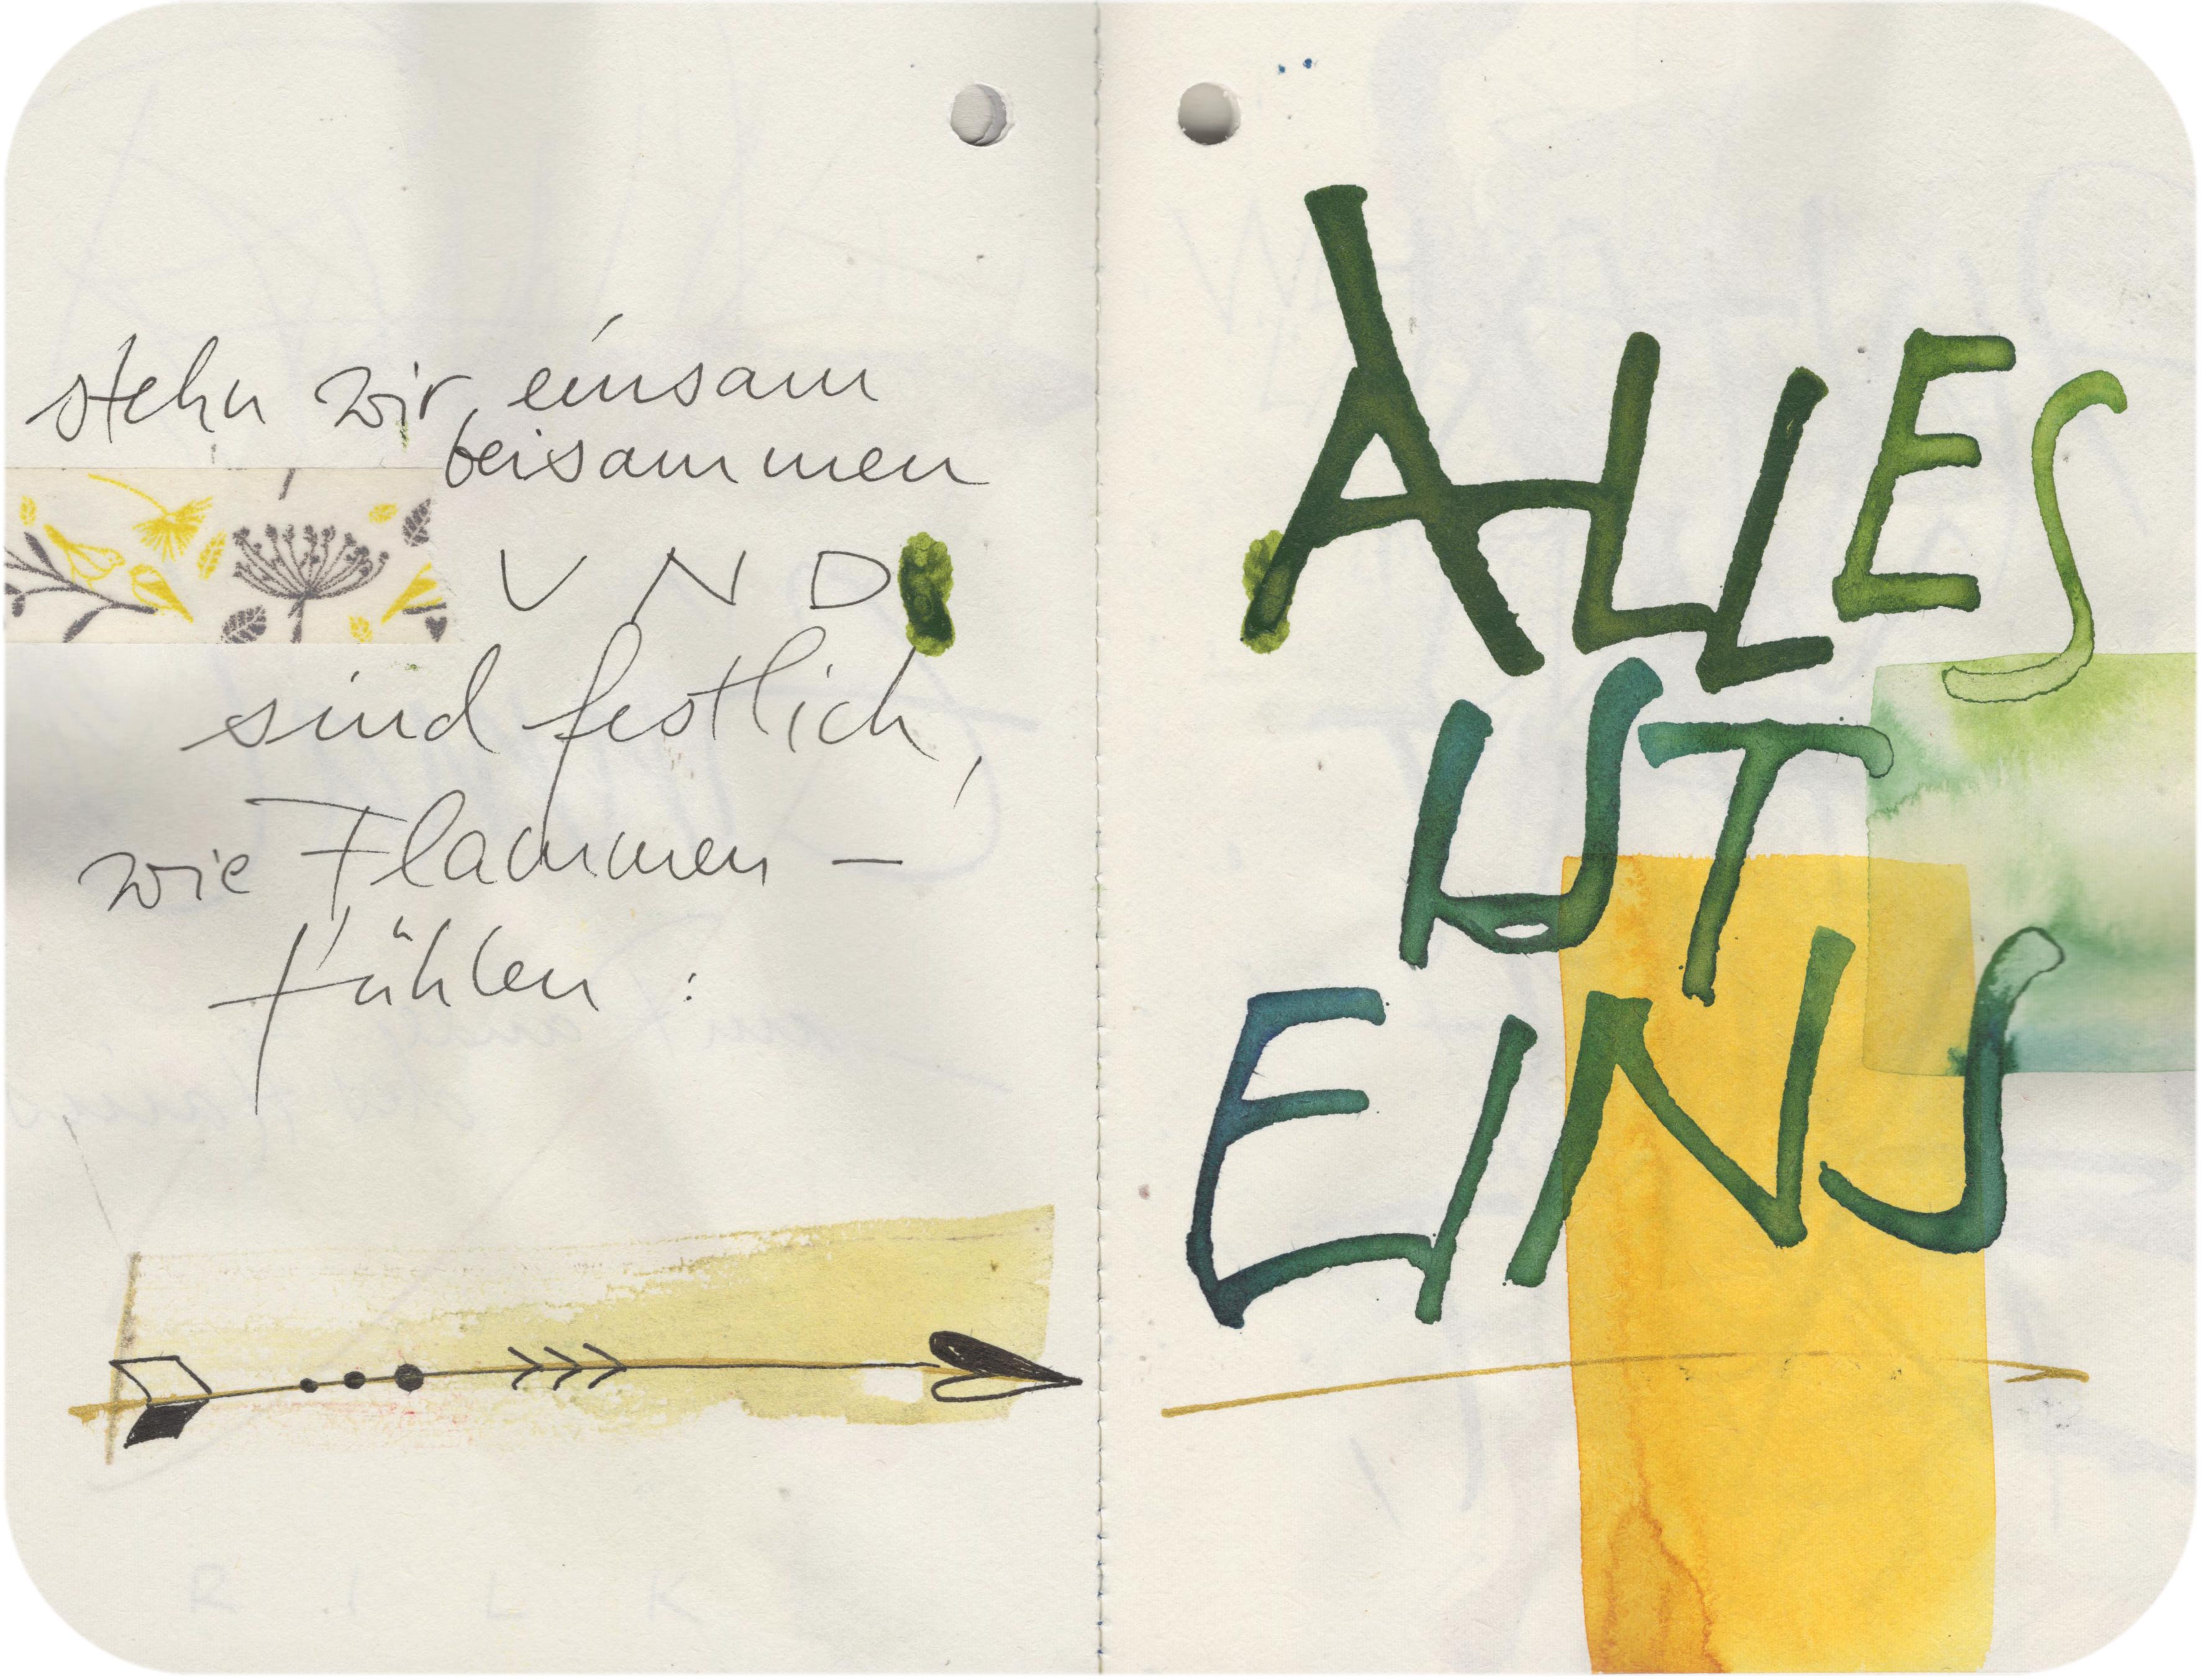 stehn wir einsam
beisammen
VND
sind festlich,
wie Flammen –
fühlen :
ALLES
IST
EINS
R I L K